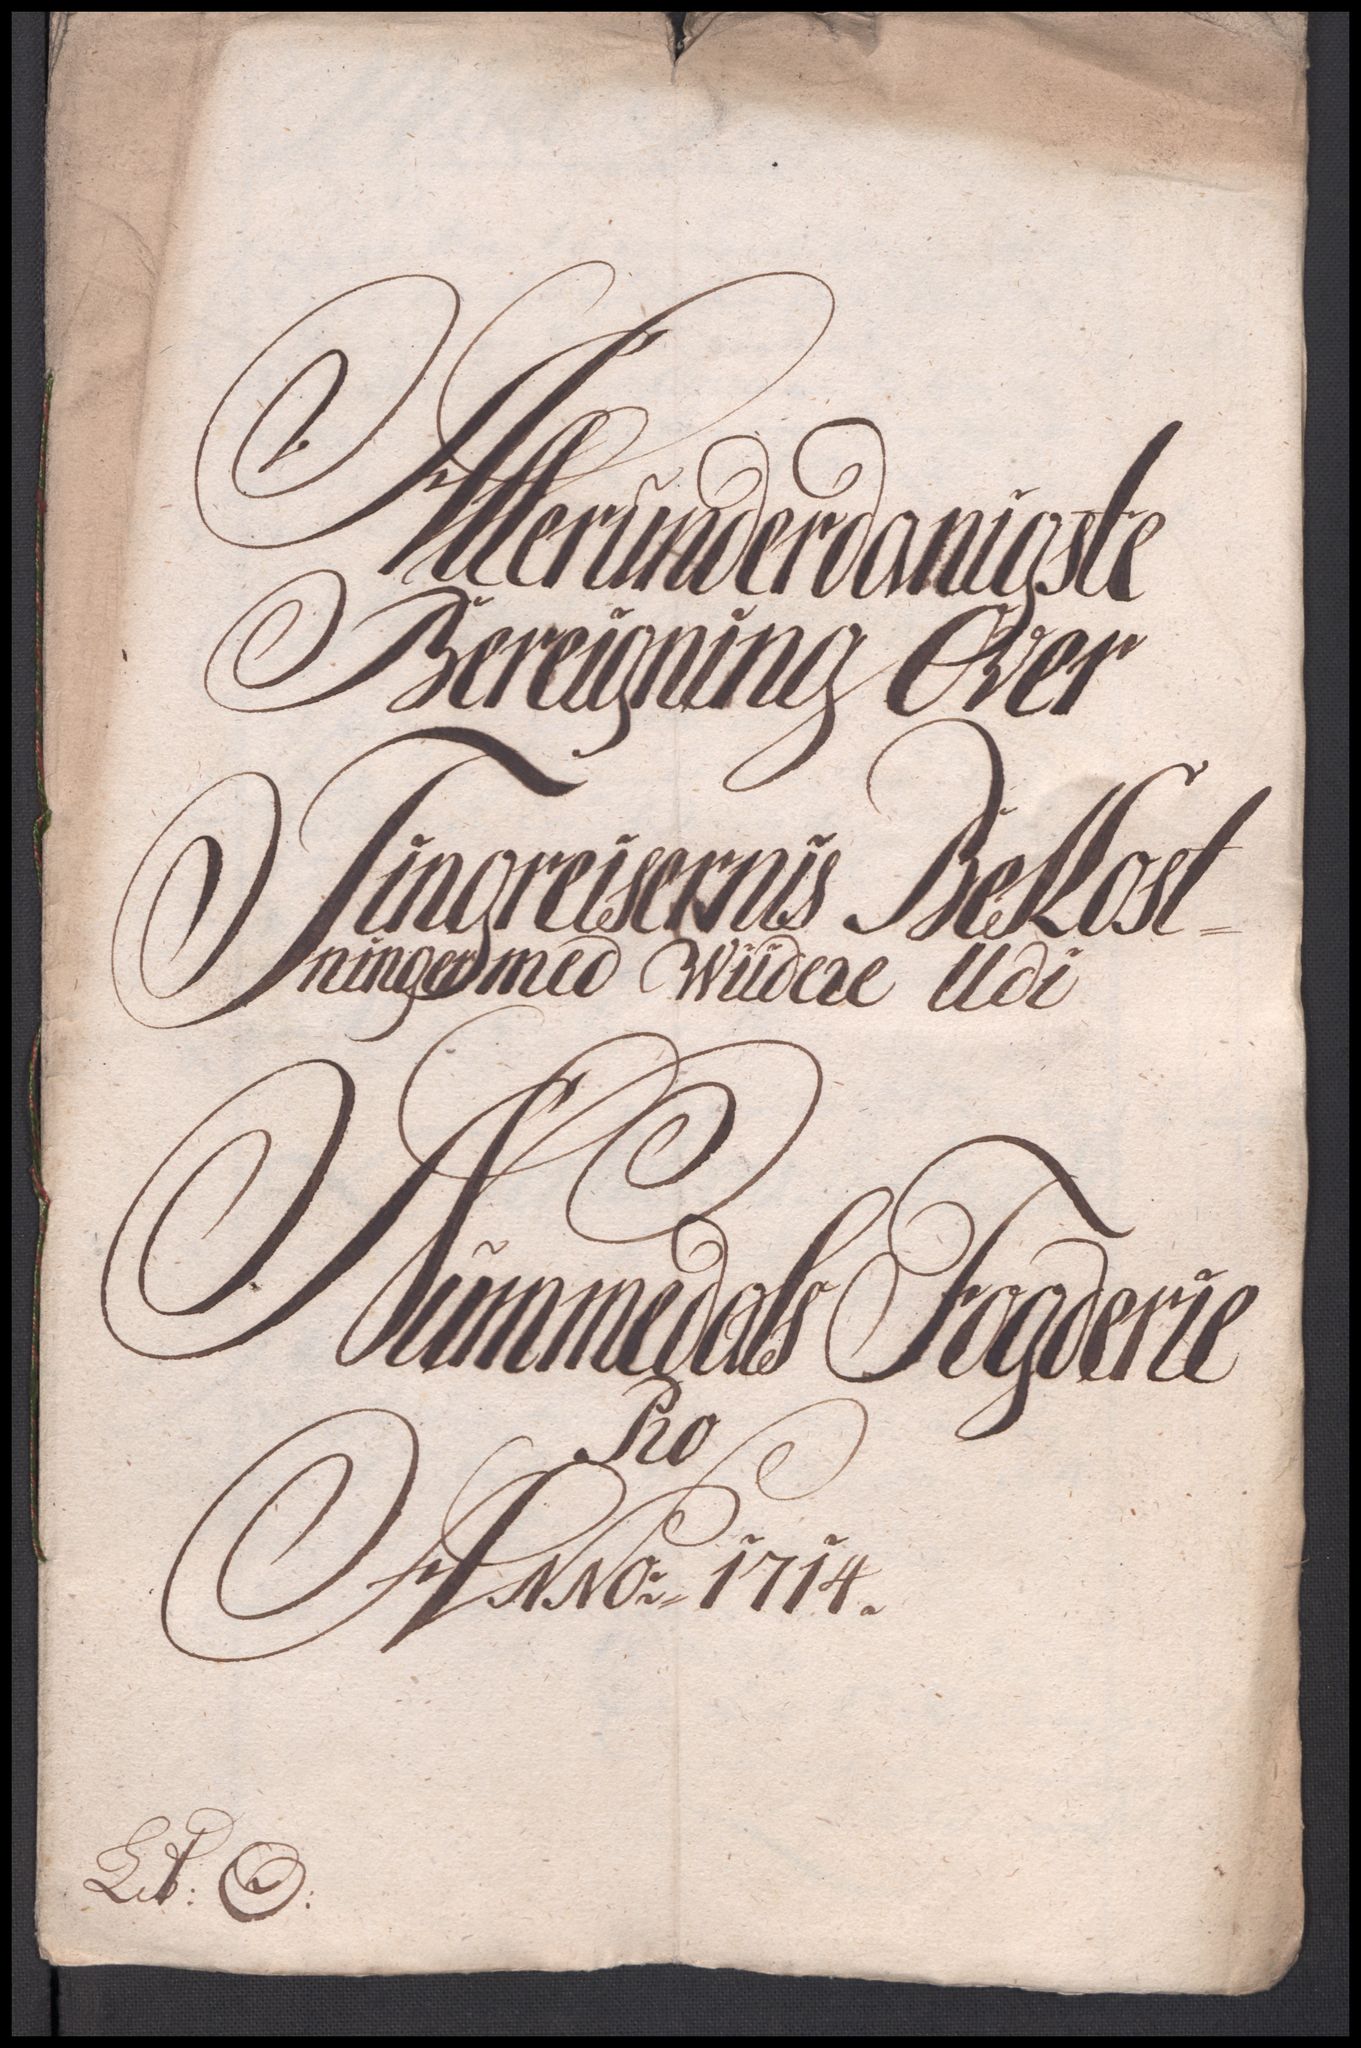 Allerunderdanigste
Bereigning Over
Tingreisernis BeKost=
ninger med Wiidere Udi
Nummedals Fogderie
Pro
ANNO:= 1714.
Lit: O: